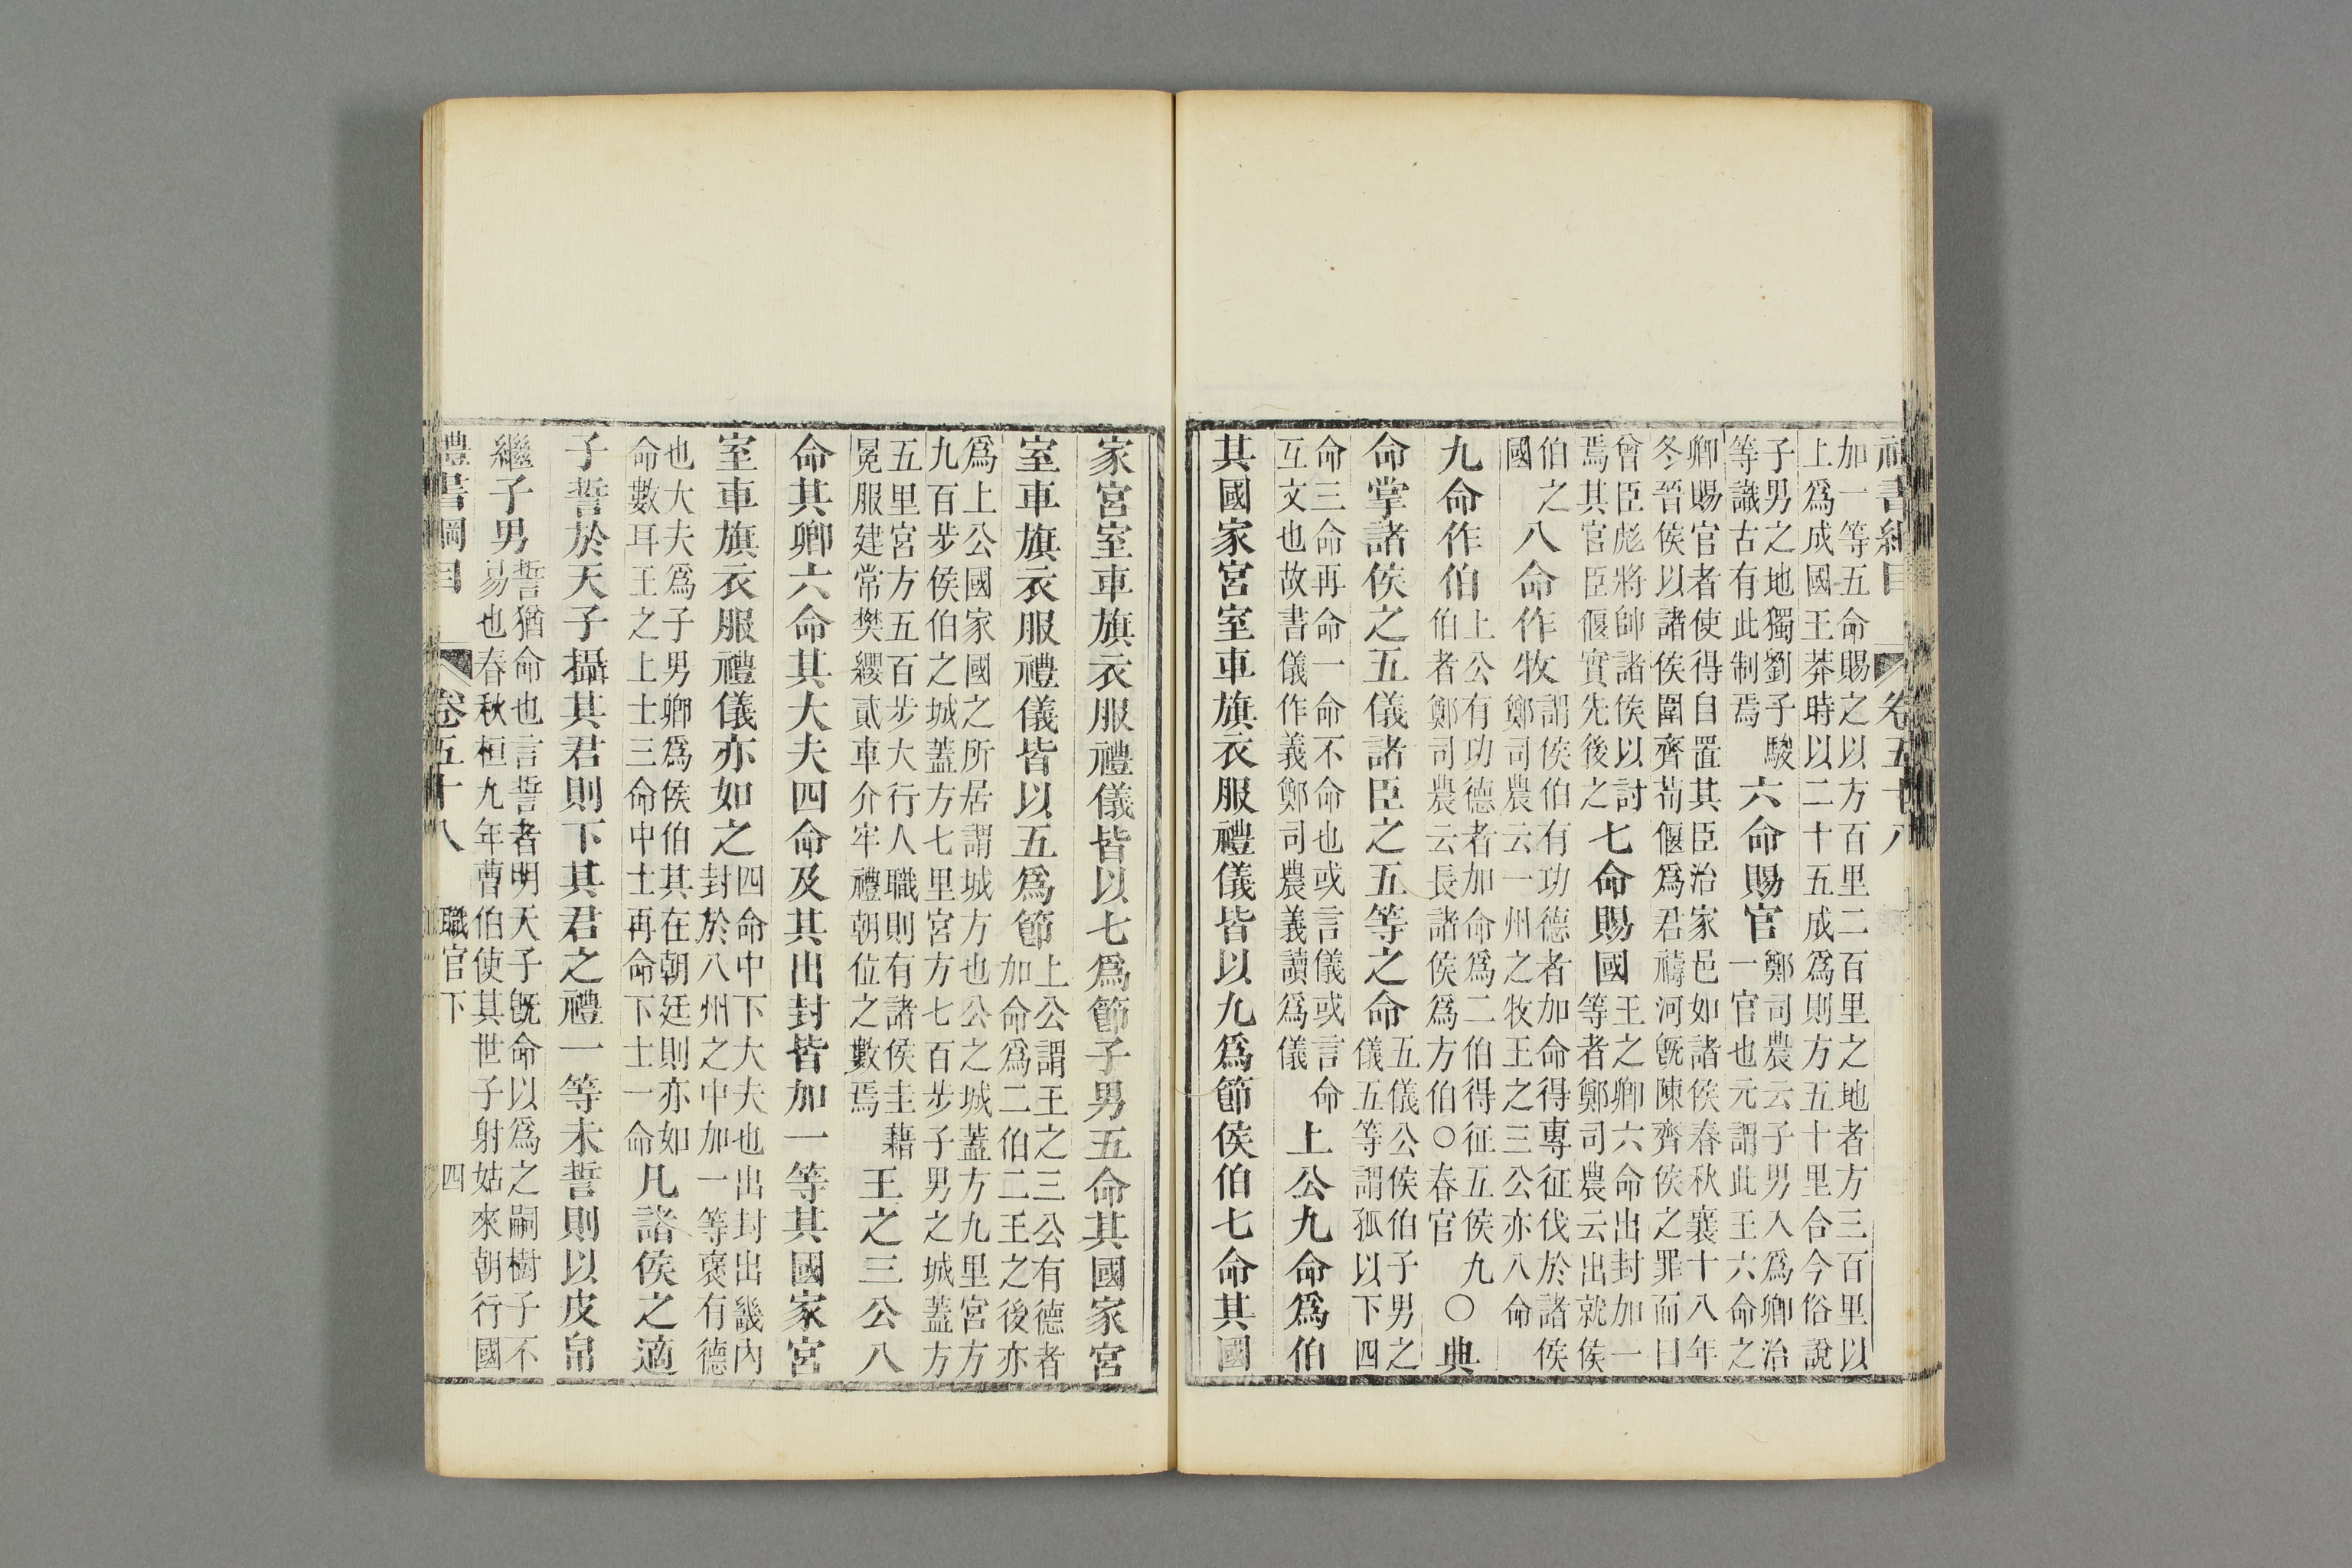 禮書綱目 卷五十八
加一等五命賜之以方百里二百里之地者方三百里以
上爲成國王莽時以二十五成爲則方五十里合今俗說
子男之地獨劉子駿
等識古有此制焉
六命賜官
鄭司農云子男入爲卿治
一官也元謂此王六命之
卿賜官者使得自置其臣治家邑如諸侯春秋襄十八年
冬晉侯以諸侯圍齊荀偃爲君禱河旣陳齊侯之罪而曰
曾臣彪將帥諸侯以討
焉其官臣偃實先後之
七命賜國
王之卿六命出封加一
等者鄭司農云出就侯
伯之
國
八命作牧
謂侯伯有功德者加命得專征伐於諸侯
鄭司農云一州之牧王之三公亦八命
九命作伯
上公有功德者加命爲二伯得征五侯九
伯者鄭司農云長諸侯爲方伯○春官
○典
命掌諸侯之五儀諸臣之五等之命
五儀公侯伯子男之
儀五等謂孤以下四
命三命再命一命不命也或言儀或言命
互文也故書儀作義鄭司農義讀爲儀
上公九命爲伯
其國家宮室車旗衣服禮儀皆以九爲節侯伯七命其國
家宮室車旗衣服禮儀皆以七爲節子男五命其國家宮
室車旗衣服禮儀皆以五爲節
上公謂王之三公有德者
加命爲二伯二王之後亦
爲上公國家國之所居謂城方也公之城蓋方九里宮方
九百步侯伯之城蓋方七里宮方七百步子男之城蓋方
五里宮方五百步大行人職則有諸侯圭藉
冕服建常樊纓貳車介牢禮朝位之數焉
王之三公八
命其卿六命其大夫四命及其出封皆加一等其國家宮
室車旗衣服禮儀亦如之
四命中下大夫也出封出畿內
封於八州之中加一等褒有德
也大夫爲子男卿爲侯伯其在朝廷則亦如
命數耳王之上士三命中士再命下士一命
凡諸侯之適
子誓於天子攝其君則下其君之禮一等未誓則以皮帛
繼子男
誓猶命也言誓者明天子旣命以爲之嗣樹子不
易也春秋桓九年曹伯使其世子射姑來朝行國
禮書綱目 卷五十八 職官下 四